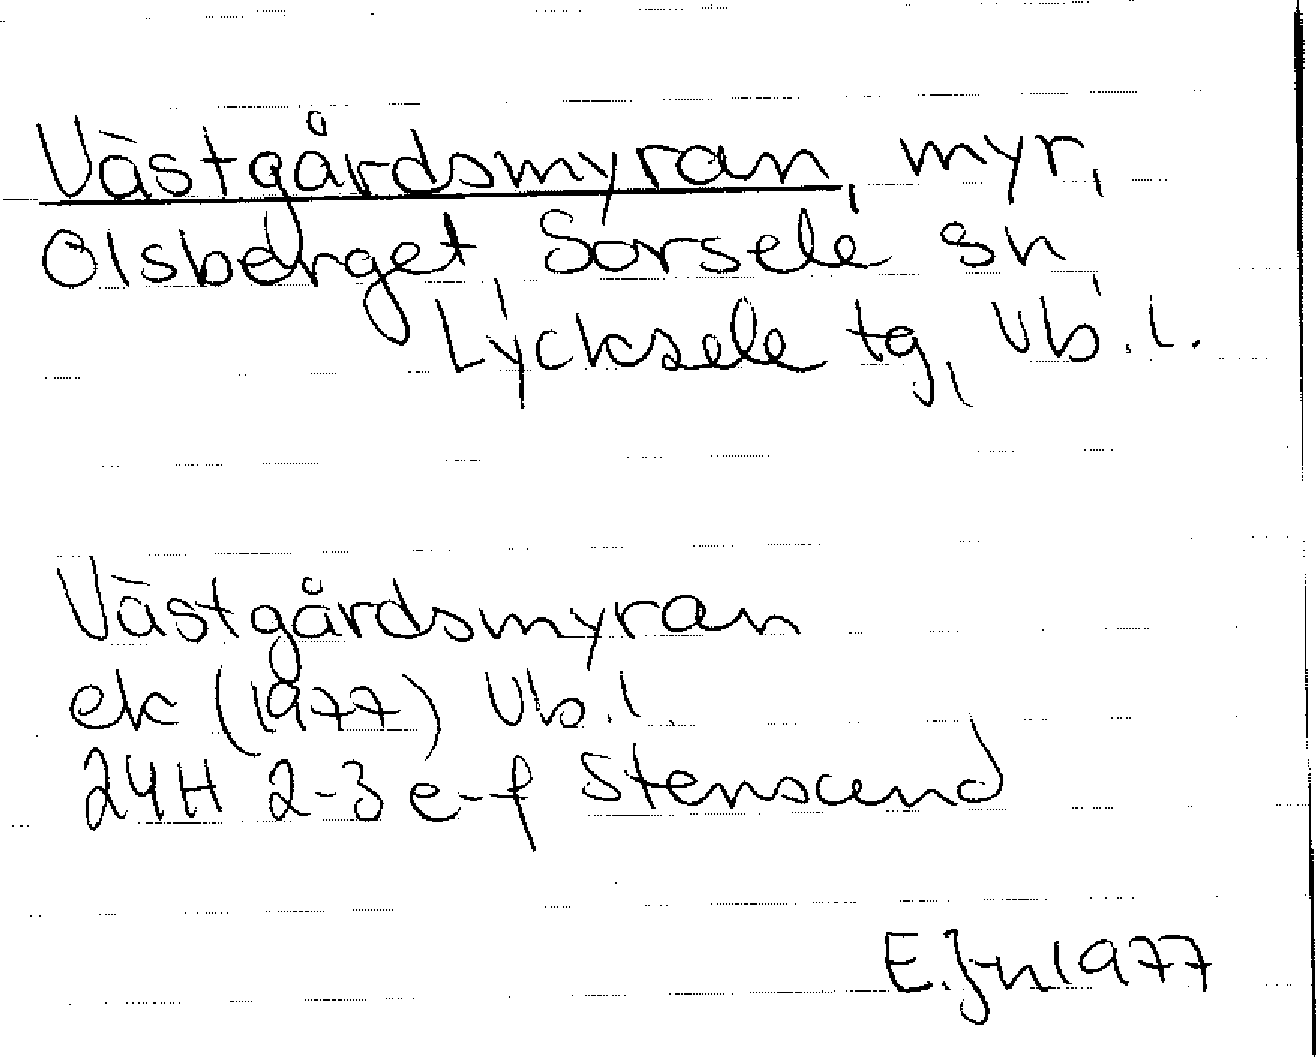 Västgårdsmyran, myr,
Olsberget, Sorsele sn,
Lycksele tg, Vb. l.
Västgårdsmyran
ek (1977) Vb. l.
24H 2-3 e-f Stensund
E.Jn 1977